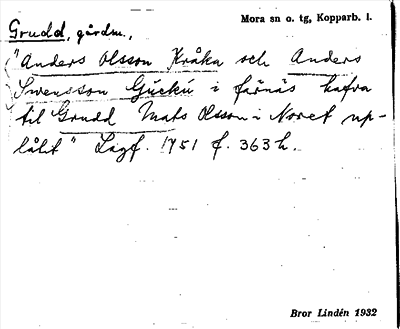 Mora sn o. tg, Kopparb. l.
Grudd, gårdn.,
"Anders Olsson Kråka och Anders
Swensson Gückú i färnäs hafva
til Grudd Mats Olsson i Noret up-
låtit" Lagf. 1751 f. 363 h.
Bror Lindén 1932